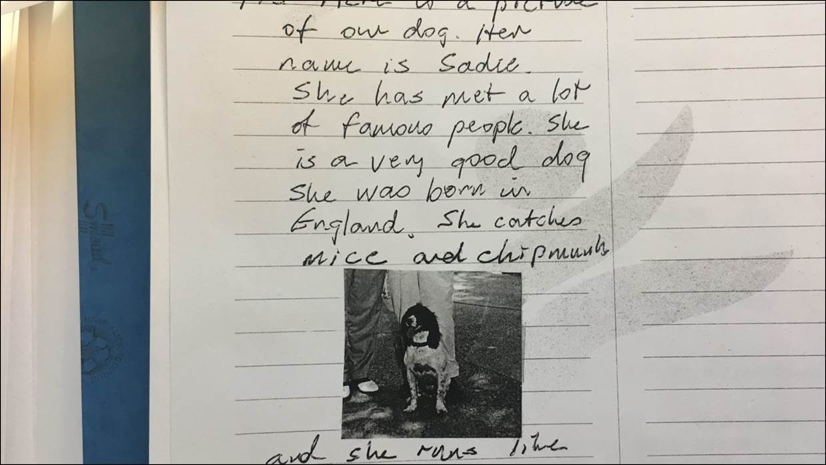 Here is a picture
of our dog. Her
name is Sadie.
She has met a lot
of famous people. She
is a very good dog
She was born in
England. She catches
mice and chipmunks
and she runs like